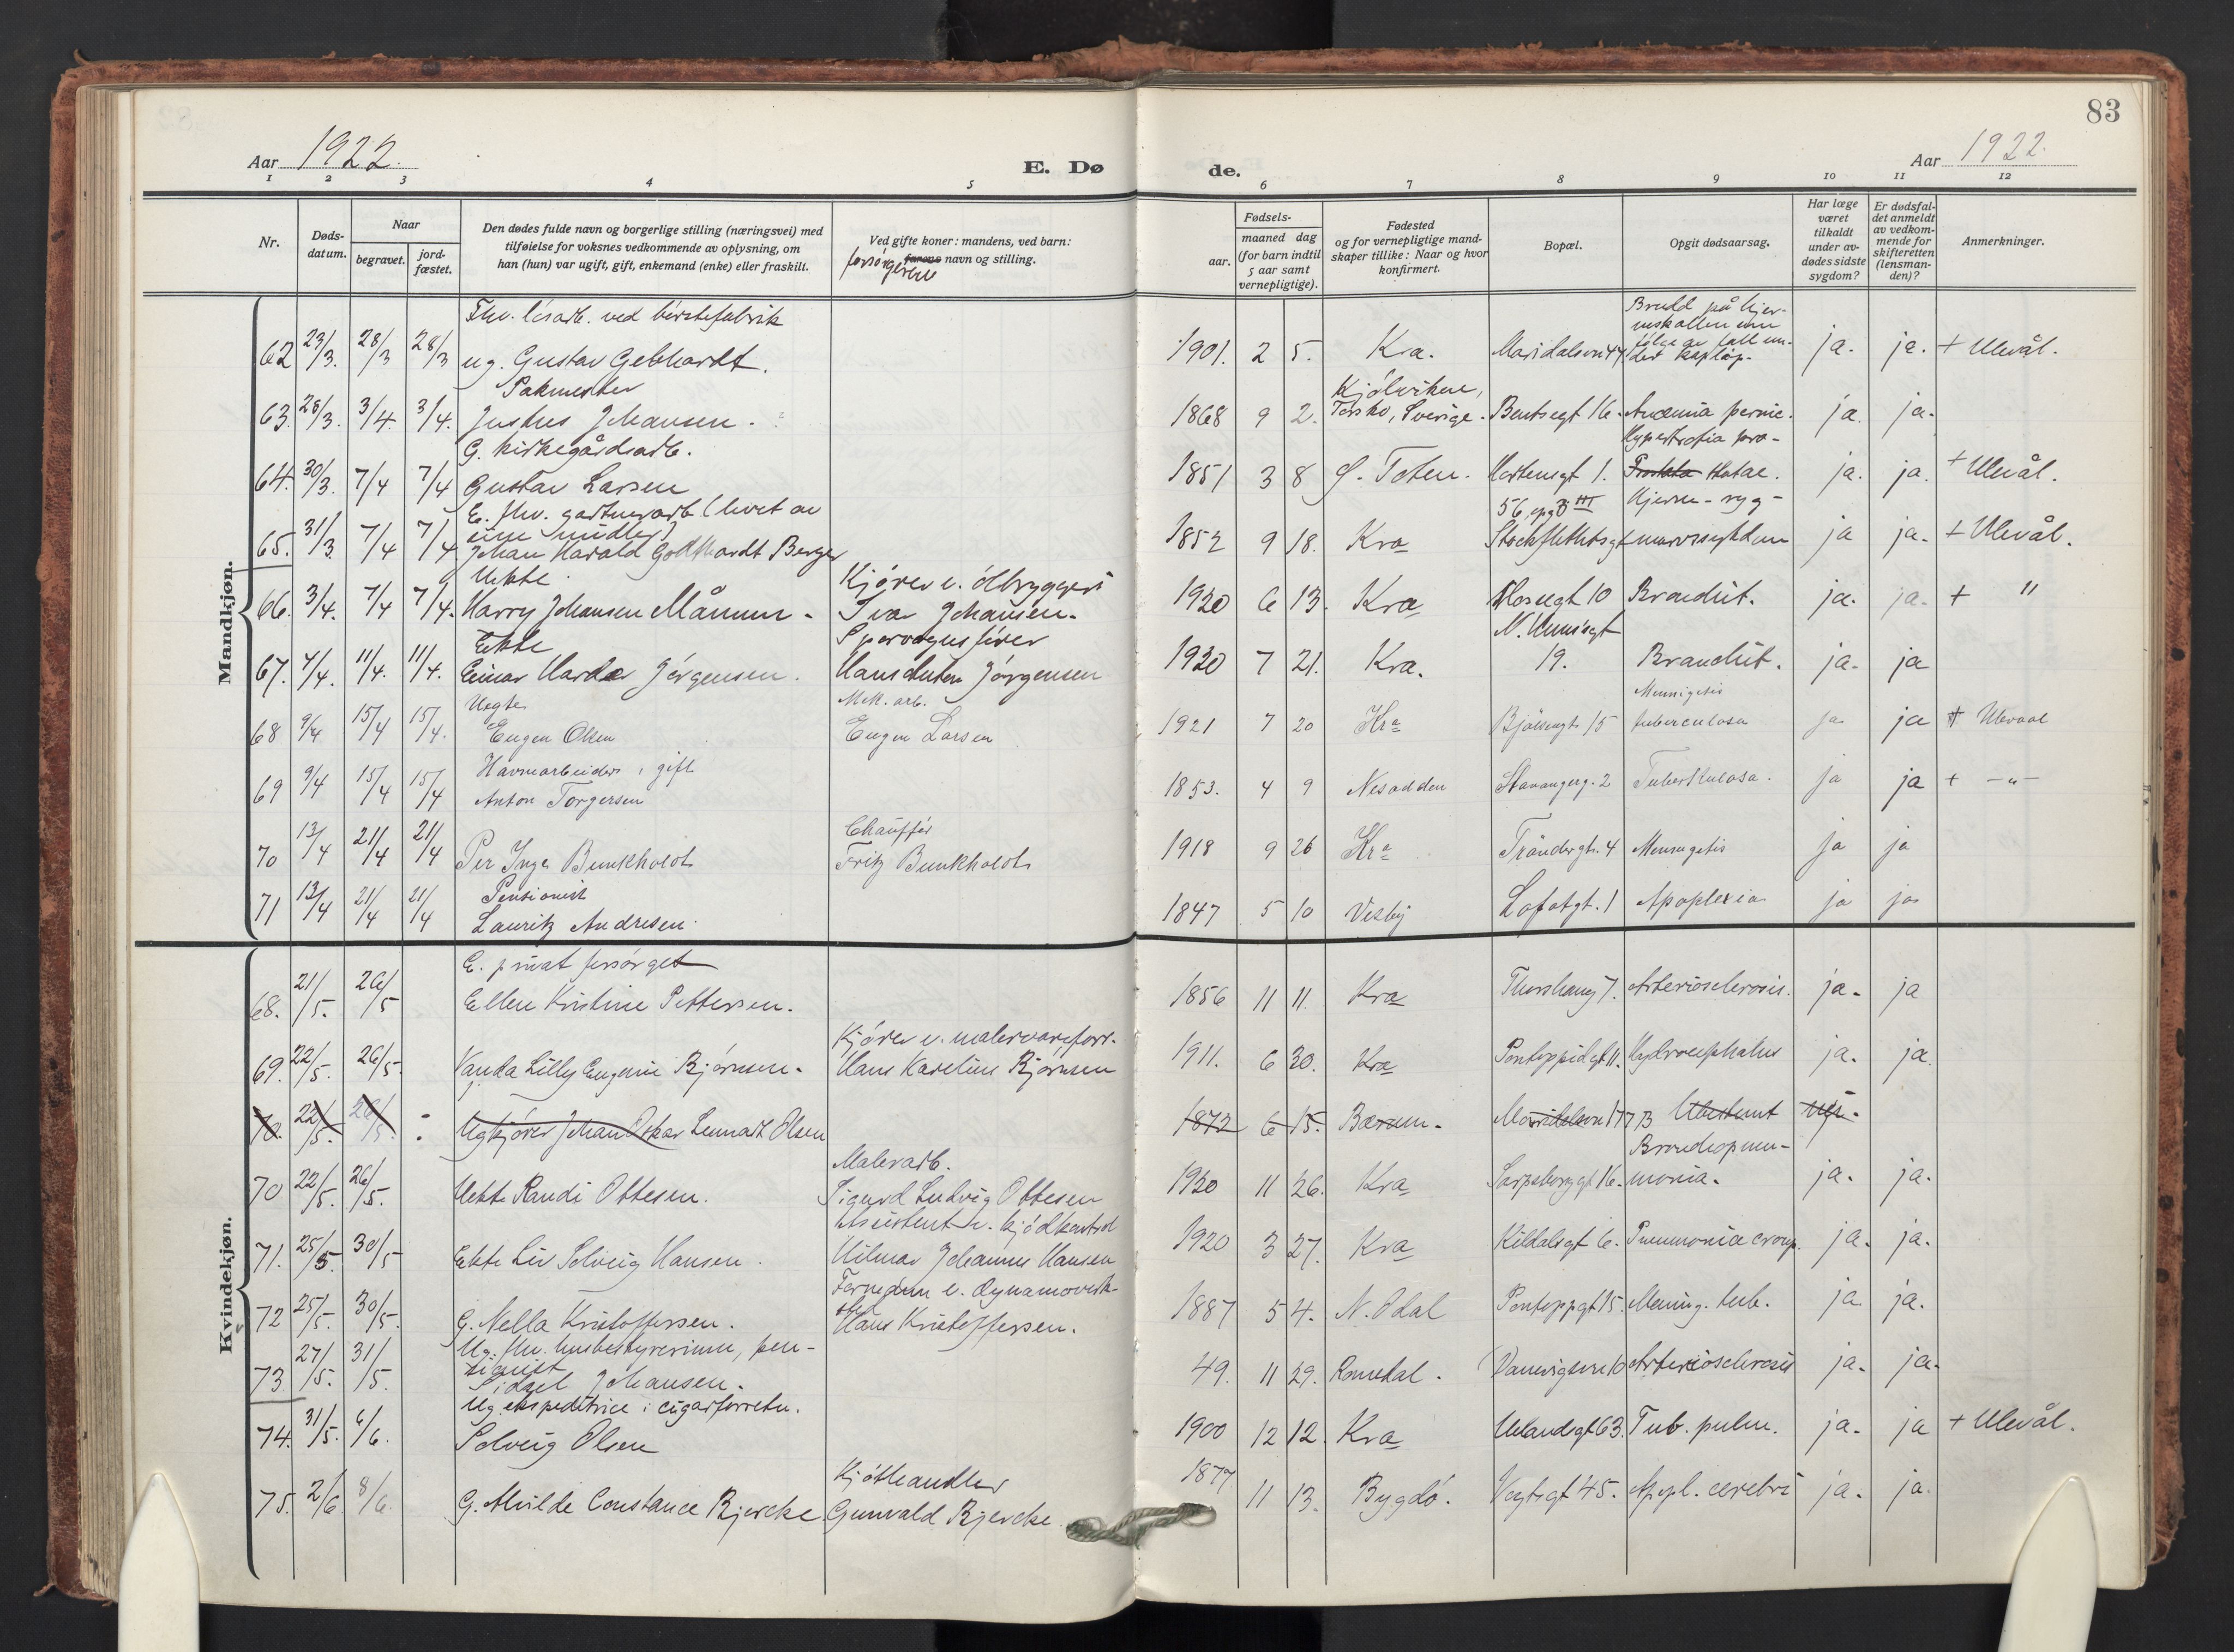 83
Aar 1922.
E. Dø
de.
Aar 1922.
1 2 3 4 5 6 7 8 9 10 11 12
Nr.
Døds-
datum.
Naar
begravet.
jord-
fæstet.
Den dødes fulde navn og borgerlige stilling (næringsvei) med
tilføielse for voksnes vedkommende av oplysning, om
han (hun) var ugift, gift, enkemand (enke) eller fraskilt.
Ved gifte koner: mandens, ved barn:
farens navn og stilling.
forsørgerens
Fødsels-
aar.
maaned dag
(for barn indtil
5 aar samt
vernepligtige).
Fødested
og for vernepligtige mand-
skaper tillike: Naar og hvor
konfirmert.
Bopæl.
Opgit dødsaarsag.
Har læge
været
tilkaldt
under av-
dødes sidste
sygdom?
Er dødsfal-
det anmeldt
av vedkom-
mende for
skifteretten
(lensman-
den)?
Anmerkninger.
Mandkjøn.
Fhv. løsarb. ved børstefabrik
62 23/3. 28/3 28/3 ug. Gustav Gebhardt. 1901. 2 5. Kra. Maridalsvn 47 Brudd på hjer-
neskallen som
følge av fall un-
der kapløp. ja. ja. + Ulevål.
Pakmester
63. 28/3. 3/4. 3/4. Justus Johansen. 1868 9 2. Kjølviken,
Torsko, Sverige. Bentsegt 16. Anæmia pernic. ja. ja.
G. kirkegårdsarb.
64. 30/3. 7/4 7/4 Gustav Larsen 1851 3 8 Ø. Toten. Mortensgt 1. Hypertrofia pro-
statae. ja. ja. + Ulevål.
E. fhv. gartnerarb. (levet av
sine midler)
65. 31/3 7/4 7/4 Johan Harald Godthardt Berger 1852 9 18. Kra 56, opg 3 III
Stockflethsgt Hjerne-ryg-
marvssykdom ja ja. + Ulevål.
Uekte. Kjører v. ølbryggeri
66. 3/4. 7/4 7/4. Harry Johansen Månum. Ivar Johansen. 1920 6 13. Kra 10 Bronchit. ja. ja. + "
Ekte Sporvognsfører
67. 7/4. 11/4. 11/4. Einar Jørgensen. Hans Anton Jørgensen 1920 7 21. Kra. 19. Bronchit. ja. ja
Uegte Mek. arb.
68 9/4 15/4 15/4. Eugen Olsen Eugen Larsen 1921 7 20 Kra Bjølsengt 15 Meningitis
tuberculosa ja ja + Ulevaal
Havnearbeider, gift
69 9/4 15/4 15/4 Anton Torgersen 1853. 4 9 Nesodden Stavangerg. 2 Tuberkulosa. ja ja + -"-
Chauffør
70 13/4 21/4 21/4 Per Inge Bunkholdt Fritz Bunkholdt 1918 9 26 Kra Trøndergt. 4 Meningitis ja ja
Pensionist
71 13/4 21/4 21/4 Lauritz Andresen. 1847 5 10 Visby Lofotgt. 1 Apoplexia ja ja
Kvindekjøn.
E. privat forsørget
68. 21/5. 26/5 Ellen Kristine Pettersen. 1856 11 11. Kra Thorshaug 7. Arteriosclerosis. ja. ja
Kjører v. malervareforr.
69. 22/5. 26/5. Vanda Lilly Eugenie Bjørnsen. Hans Karelius Bjørnsen 1911. 6 30. Kra Pontoppidgt 11. Hydrocephalus ja. ja.
70. 22/5. 26/5. Ug kjører Johan Oskar Lennart Olsen 1872 6 15. Bærum. Maridalsvn 177 B Ubestemt
Malerarb.
70 22/5. 26/5. Uekte Randi Ottesen. Sigurd Ludvig Ottesen 1920 11 26. Kra Sarpsborggt 16. Bronchopneu-
monia. ja. ja.
Assistent v. kjødkontrol
71. 25/5. 30/5 Ekte Liv Solveig Hansen. Hilmar Johannes Hansen 1920 3 27. Kra Kildalsgt 6. Pneumonia croup. ja. ja.
Formann v. dynamoverk-
sted
72 25/5. 30/5. G. Nella Kristoffersen. Hans Kristoffersen. 1887 5 4. N. Odal Pontoppgt 15. Mening. tub. ja. ja.
Ug. fhv. husbestyrerinne, pen-
sionist
73. 27/5. 31/5. Sidsel Johansen. 49. 11 29. Romedal. Vannvigsvn 10 Arteriosclerosis ja. ja.
Ug. ekspeditrice i cigarforretn.
74. 31/5. 6/6. Solveig Olsen 1900 12 12. Kra Uelandsgt 63. Tub. pulm. ja. ja + Ulevål.
Kjøthandler
75. 2/6. 8/6. G. Alvilde Constance Bjercke. Gunvald Bjercke. 1877 11 13. Bygdø. Vogtsgt 45. Apopl. cerebri ja. ja.